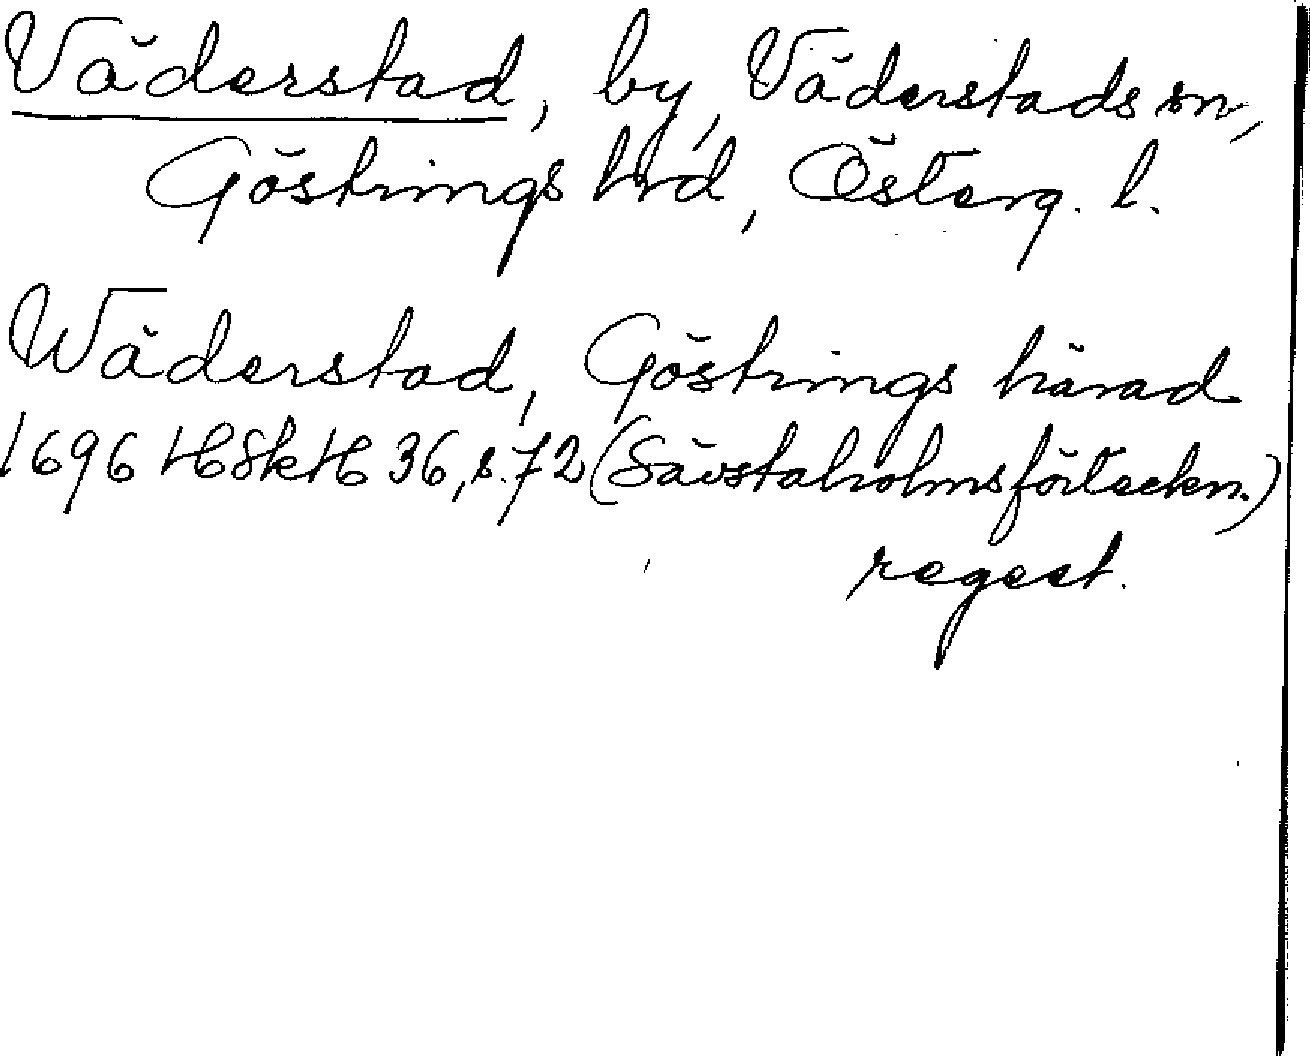 Väderstad, by, Väderstads sn,
Göstrings hrd, Österg. l.
Wäderstad, Göstrings härad
1696 HSkH 36, s. 72 (Sävstaholmsförteckn.)
regest.